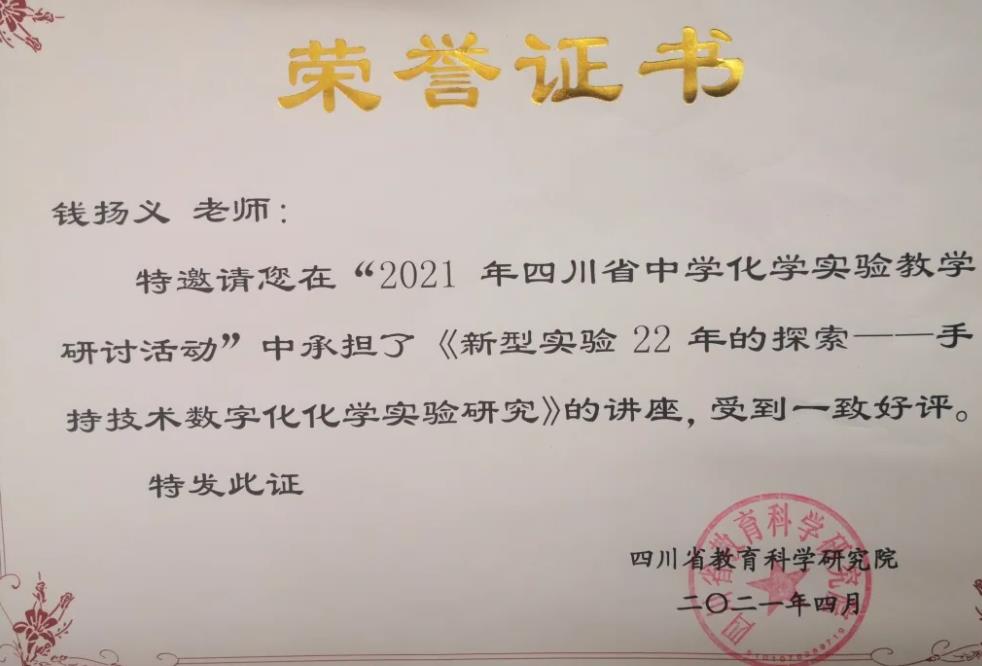 荣誉证书
钱扬义 老师：
特邀请您在“2021 年四川省中学化学实验教学
研讨活动”中承担了《新型实验 22 年的探索——手
持技术数字化化学实验研究》的讲座，受到一致好评。
特发此证
四川省教育科学研究院
二〇二一年四月
四川省教育科学研究院